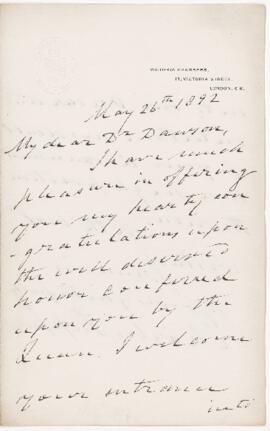 VICTORIA STREET,
LONDON, S.W.
May 26th 1892
My dear Dr Dawson,
I have much
pleasure in offering
you my hearty con
-gratulations upon
the well deserved
honor conferred
upon you by the
Queen. I welcome
your entrance
into